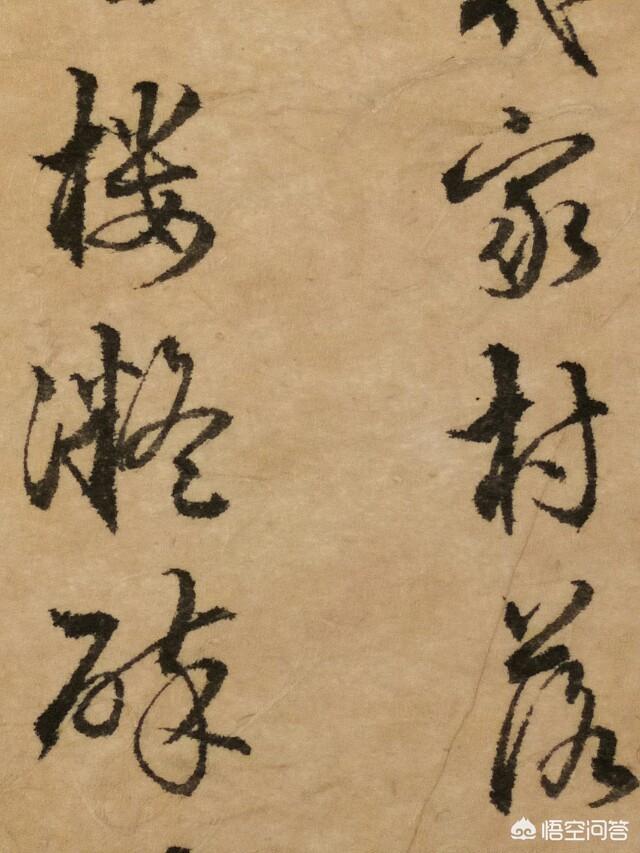 家村落
楼凝碎
悟空问答